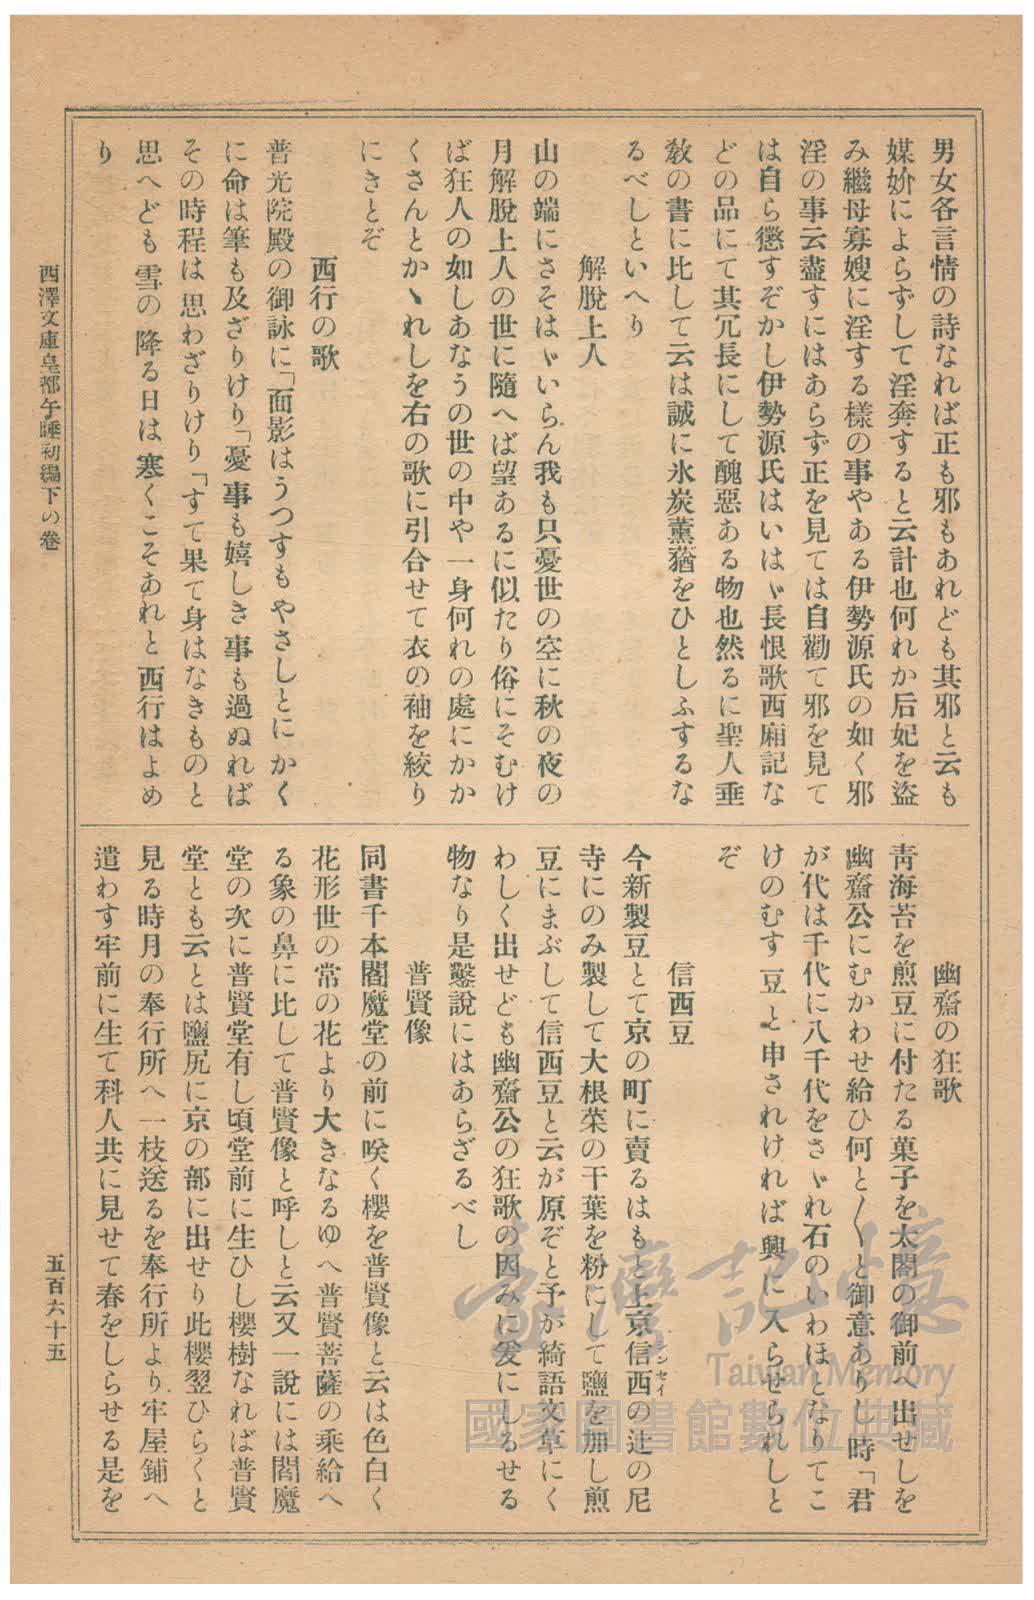 男女各言情の詩なれば正も邪もあれども其邪と云も
媒妁によらずして淫奔すると云計也何れか后妃を盜
み繼母寡嫂に淫する樣の事やある伊勢源氏の如く邪
淫の事云盡すにはあらず正を見ては自勸て邪を見て
は自ら懲すぞかし伊勢源氏はいはゞ長恨歌西廂記な
どの品にて其冗長にして醜惡ある物也然るに聖人垂
敎の書に比して云は誠に氷炭薰蕕をひとしふするな
るべしといへり
解脫上人
山の端にさそはゞいらん我も只憂世の空に秋の夜の
月解脫上人の世に隨へば望あるに似たり俗にそむけ
ば狂人の如しあなうの世の中や一身何れの處にかか
くさんとかゝれしを右の歌に引合せて衣の袖を絞り
にきとぞ
西行の歌
普光院殿の御詠に「面影はうつすもやさしとにかく
に命は筆も及ざりけり「憂事も嬉しき事も過ぬれば
その時程は思わざりけり「すて果て身はなきものと
思へども雪の降る日は寒くこそあれと西行はよめ
り
幽齋の狂歌
靑海苔を煎豆に付たる菓子を太閤の御前へ出せしを
幽齋公にむかわせ給ひ何と〱と御意ありし時「君
が代は千代に八千代をさゞれ石のいわほとなりてこ
けのむす豆と申されければ興に入らせられしと
ぞ
信西豆
今新製豆とて京の町に賣るはもと上京信西ンセイの辻の尼
寺にのみ製して大根菜の干葉を粉にして鹽を加し煎
豆にまぶして信西豆と云が原ぞと予が綺語文草にく
わしく出せども幽齋公の狂歌の因みに爰にしるせる
物なり是鑿說にはあらざるべし
普賢像
同書千本閻魔堂の前に咲く櫻を普賢像と云は色白く
花形世の常の花より大きなるゆへ普賢菩薩の乘給へ
る象の鼻に比して普賢像と呼しと云又一說には閻魔
堂の次に普賢堂有し頃堂前に生ひし櫻樹なれば普賢
堂とも云とは鹽尻に京の部に出せり此櫻翌ひらくと
見る時月の奉行所へ一枝送るを奉行所より牢屋鋪へ
遣わす牢前に生て科人共に見せて春をしらせる是を
西澤文庫皇都午睡初編下の卷
五百六十五
臺灣記憶
Taiwan Memory
國家圖書館數位典藏